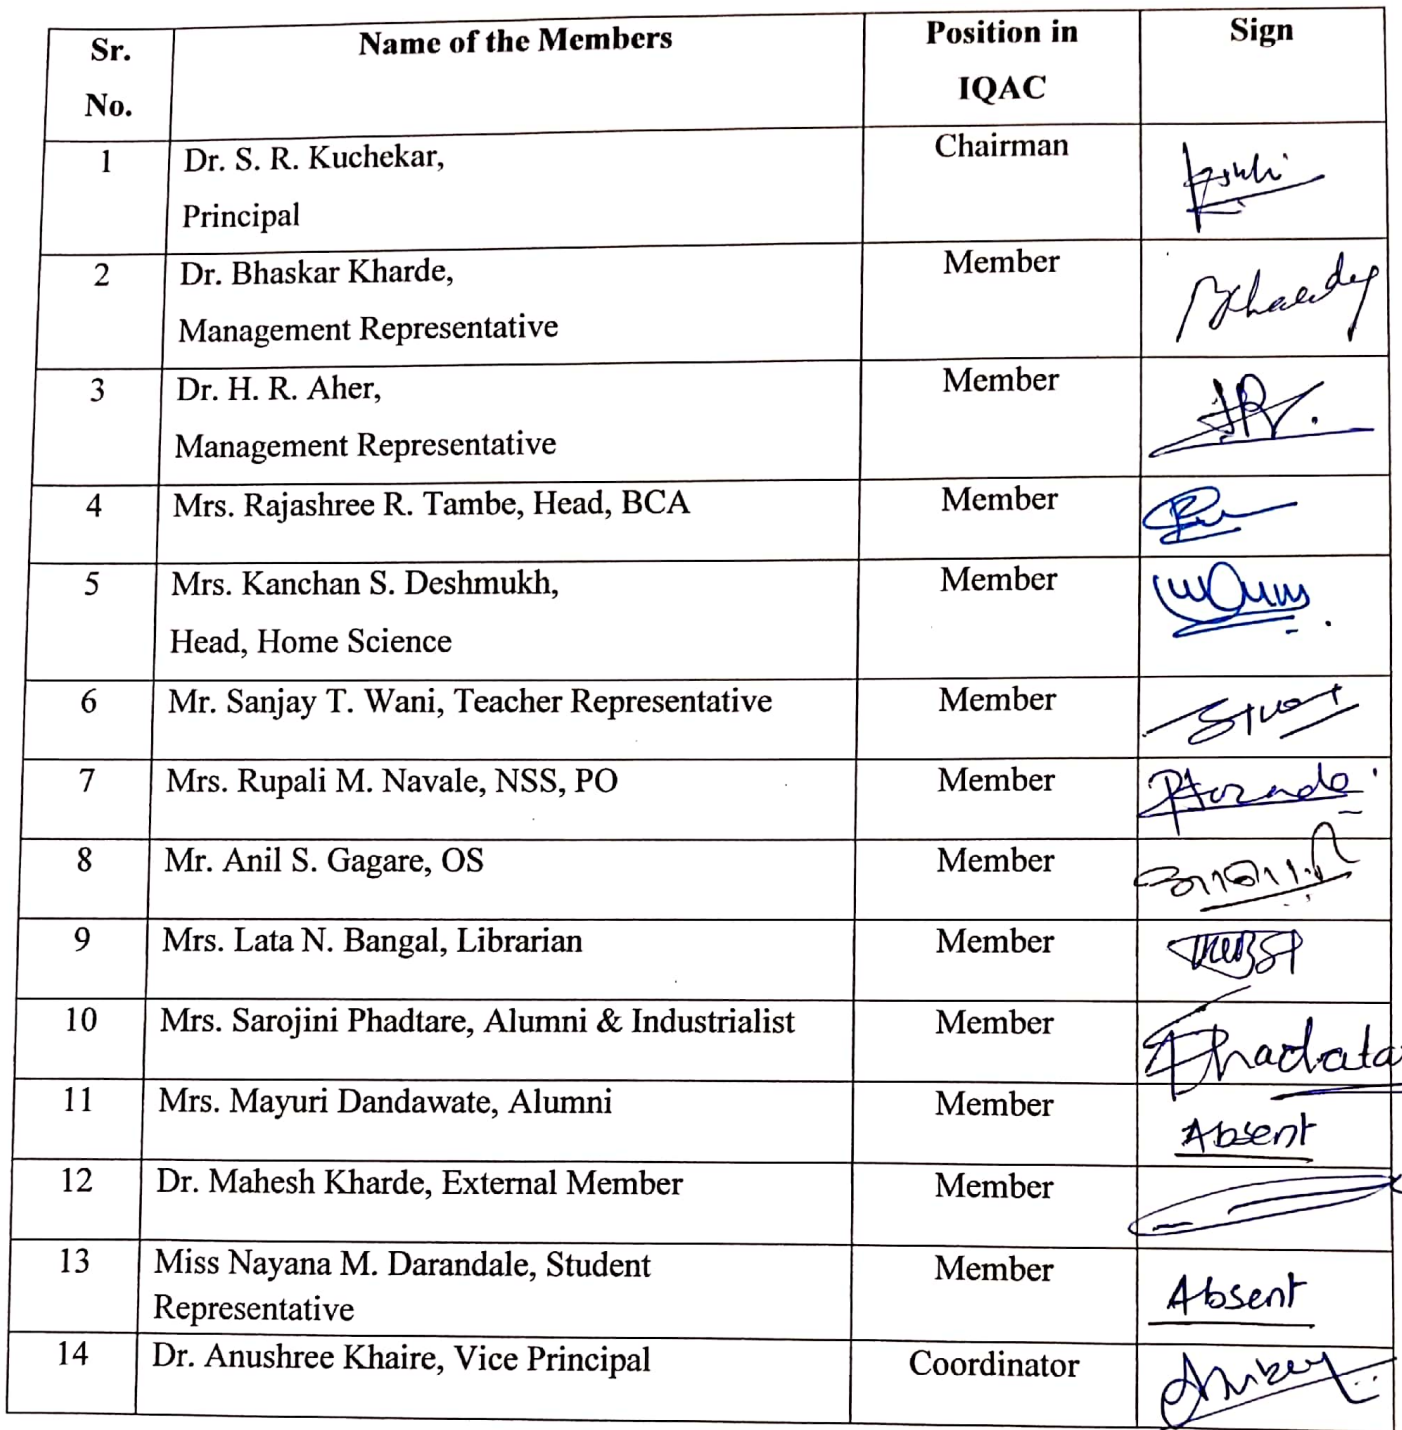 Sr. No. Name of the Members Position in IQAC Sign
1 Dr. S. R. Kuchekar, Chairman
Principal
2 Dr. Bhaskar Kharde, Member
Management Representative
3 Dr. H. R. Aher, Member
Management Representative
4 Mrs. Rajashree R. Tambe, Head, BCA Member
5 Mrs. Kanchan S. Deshmukh, Member
Head, Home Science
6 Mr. Sanjay T. Wani, Teacher Representative Member
7 Mrs. Rupali M. Navale, NSS, PO Member
8 Mr. Anil S. Gagare, OS Member
9 Mrs. Lata N. Bangal, Librarian Member
10 Mrs. Sarojini Phadtare, Alumni & Industrialist Member
11 Mrs. Mayuri Dandawate, Alumni Member Absent
12 Dr. Mahesh Kharde, External Member Member
13 Miss Nayana M. Darandale, Student Member Absent
Representative
14 Dr. Anushree Khaire, Vice Principal Coordinator